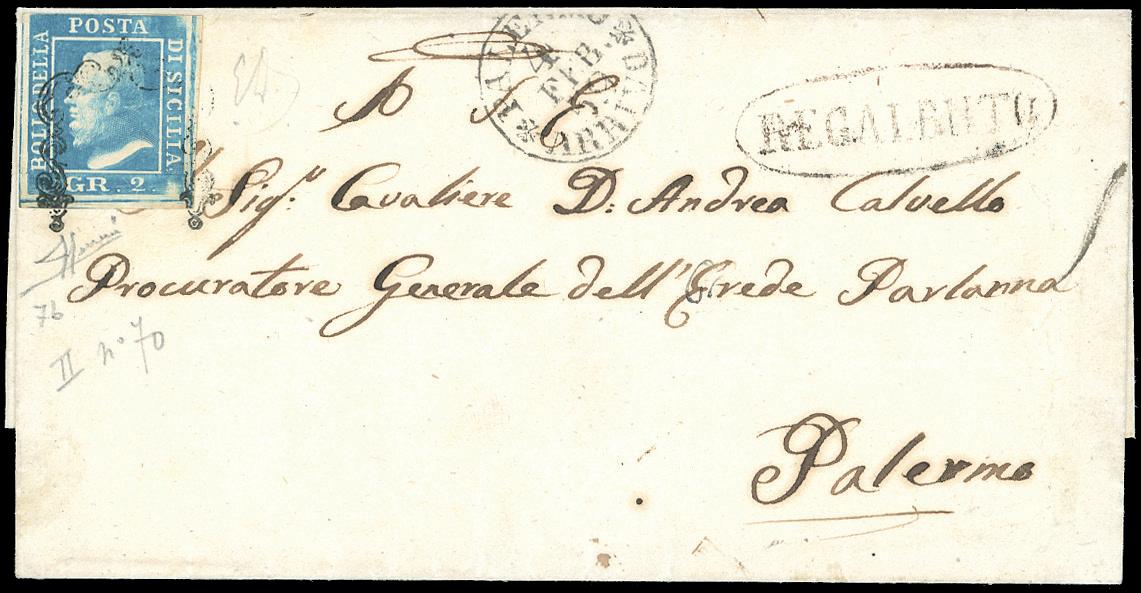 BOLLO DELLA
POSTA
DI SICILIA
GR. 2.
PALERMO
4
FEB.
ARRIVO
REGALBUTO
A S. E.
Sig.r Cavaliere D: Andrea Calvello
Procuratore Generale dell'Erede Parlanna
76
II n° 70
Palermo